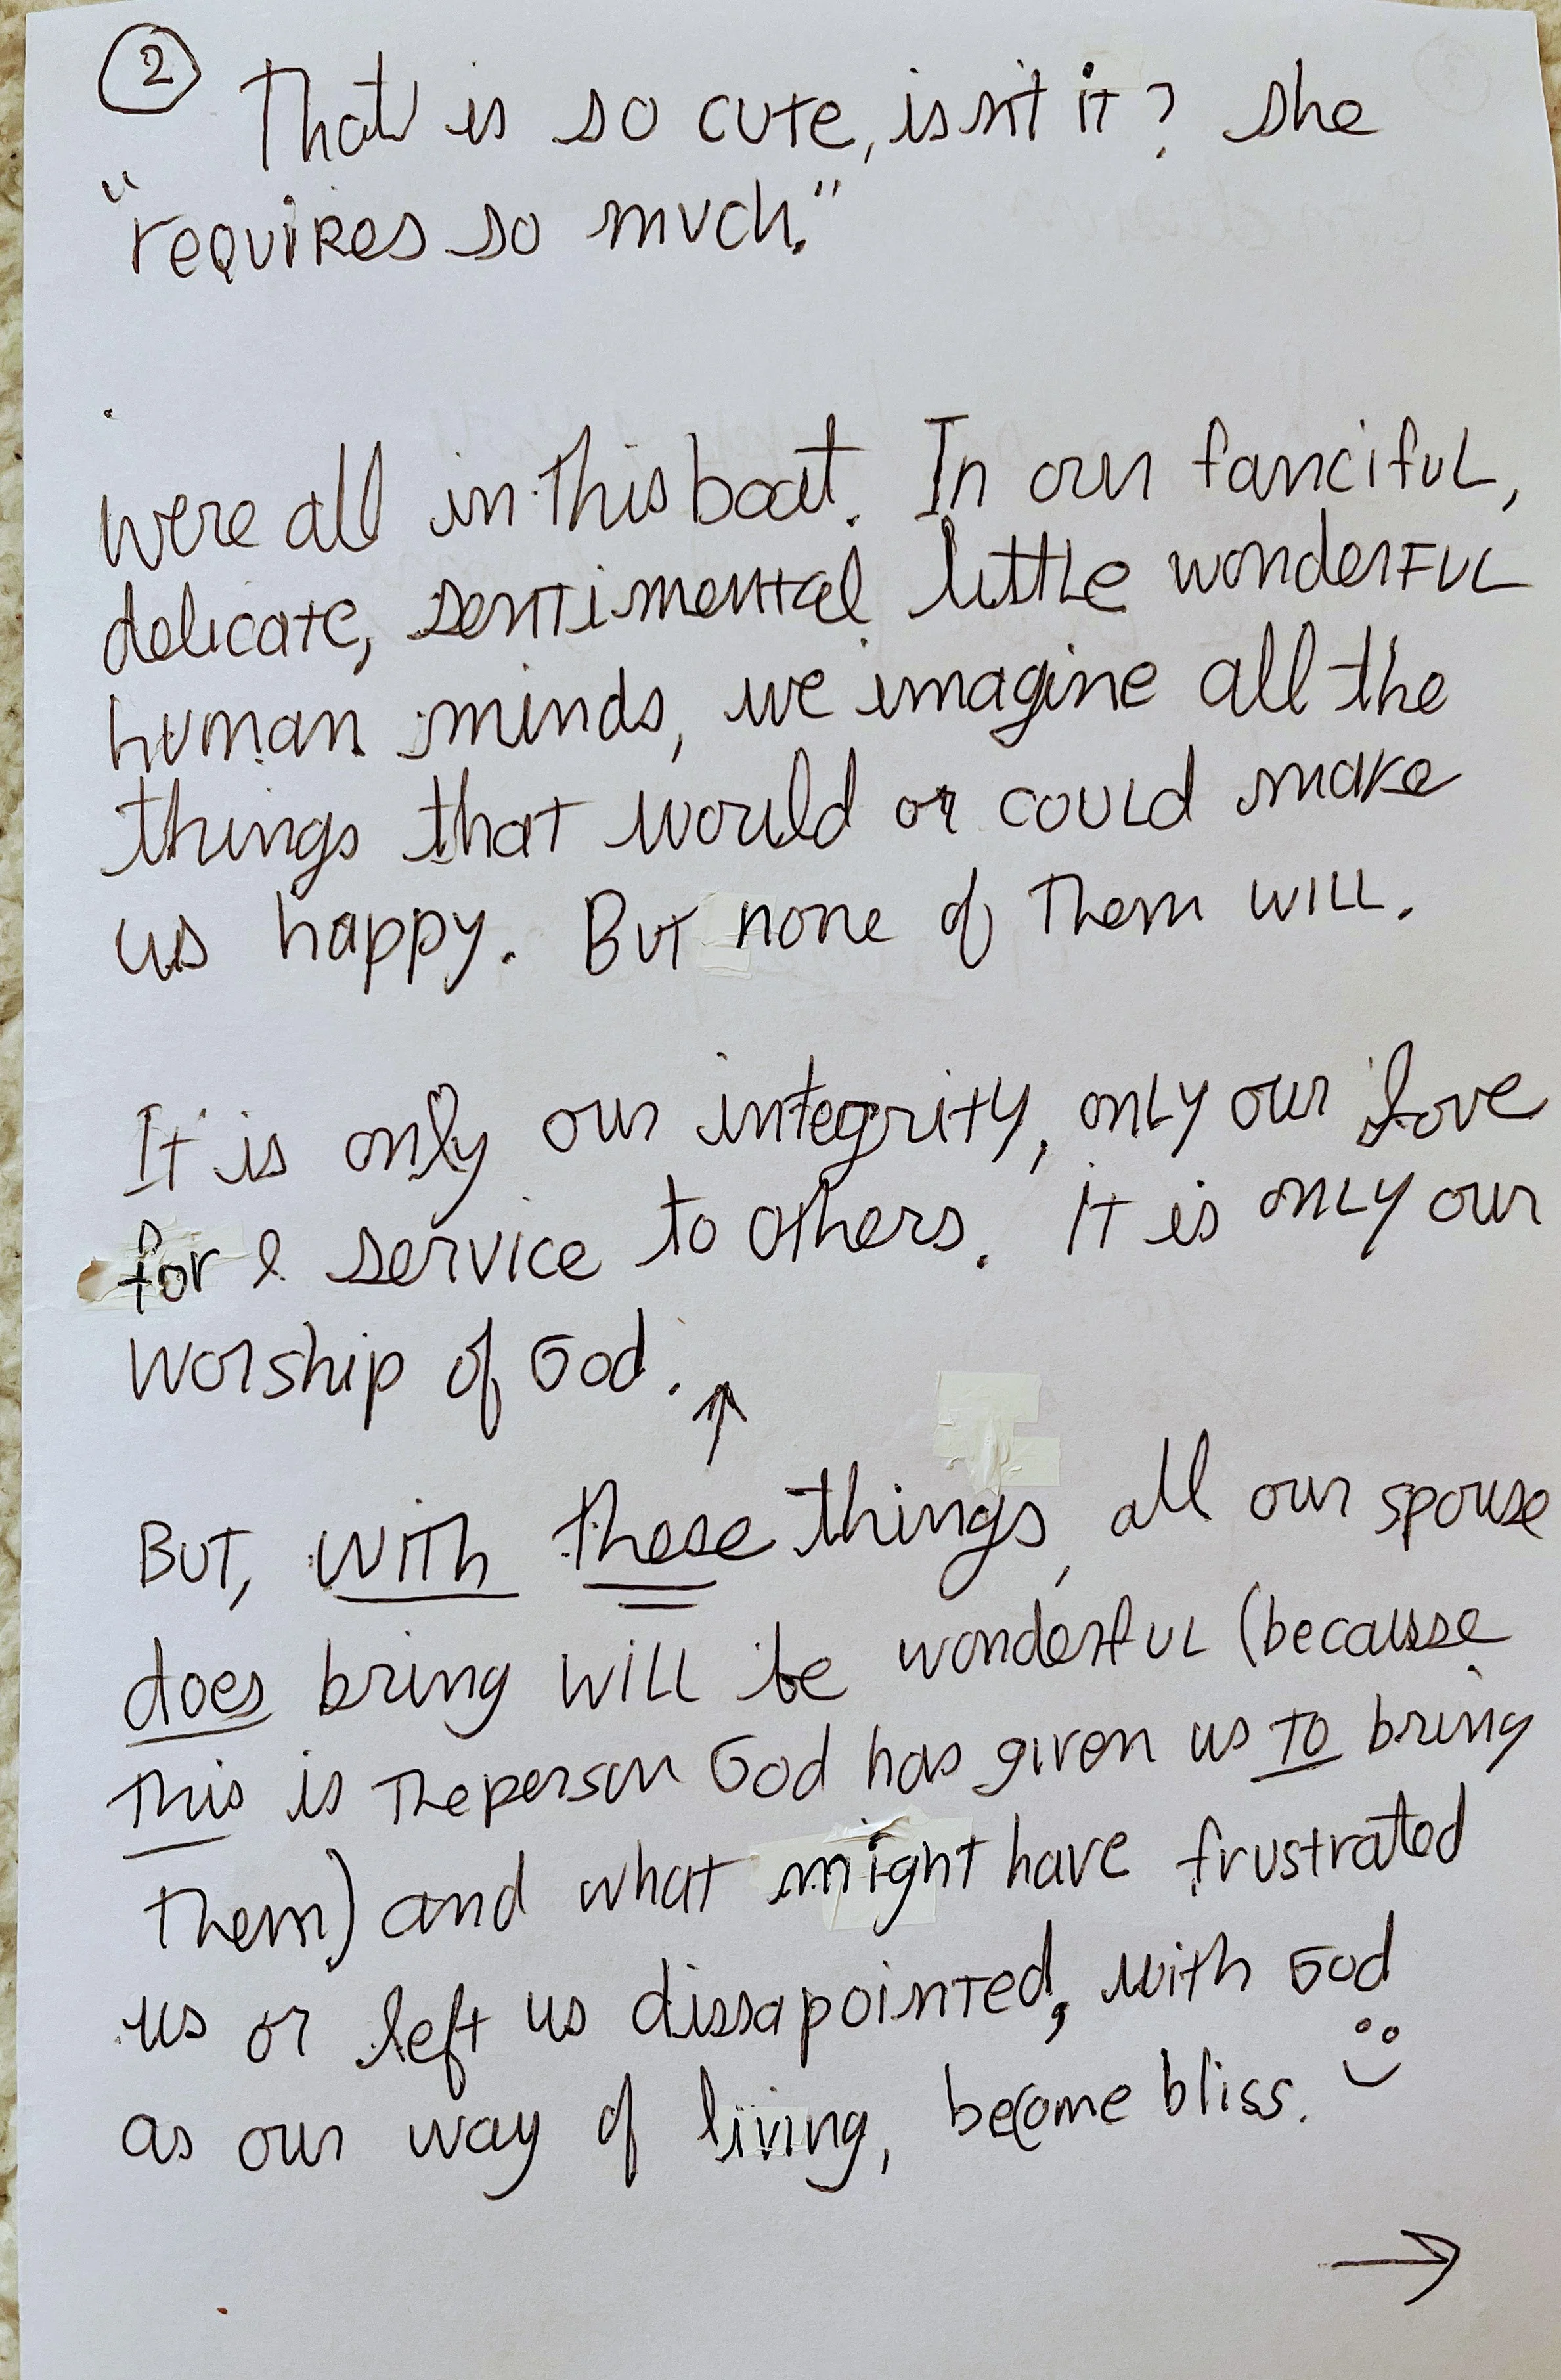 ② That is so cute, isn't it? she
"requires so much."
were all in this boat. In our fanciful,
delicate, sentimental little wonderful
human minds, we imagine all the
things that would or could make
us happy. But none of them will.
It is only our integrity, only our love
for & service to others. it is only our
worship of God. ↑
But, with these things, all our spouse
does bring will be wonderful (because
this is the person God has given us to bring
them) and what might have frustrated
us or left us dissapointed, with God
as our way of living, become bliss. :)
→